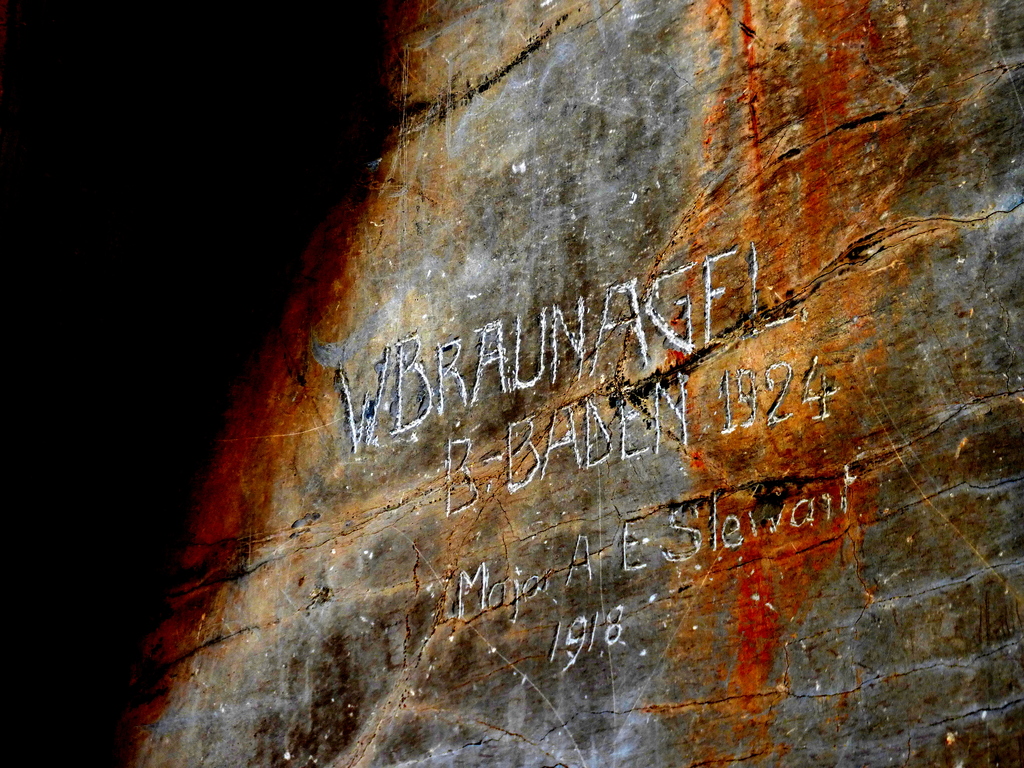 W.BRAUNAGEL.
B.-BADEN 1924
Major A E Stewart
1918